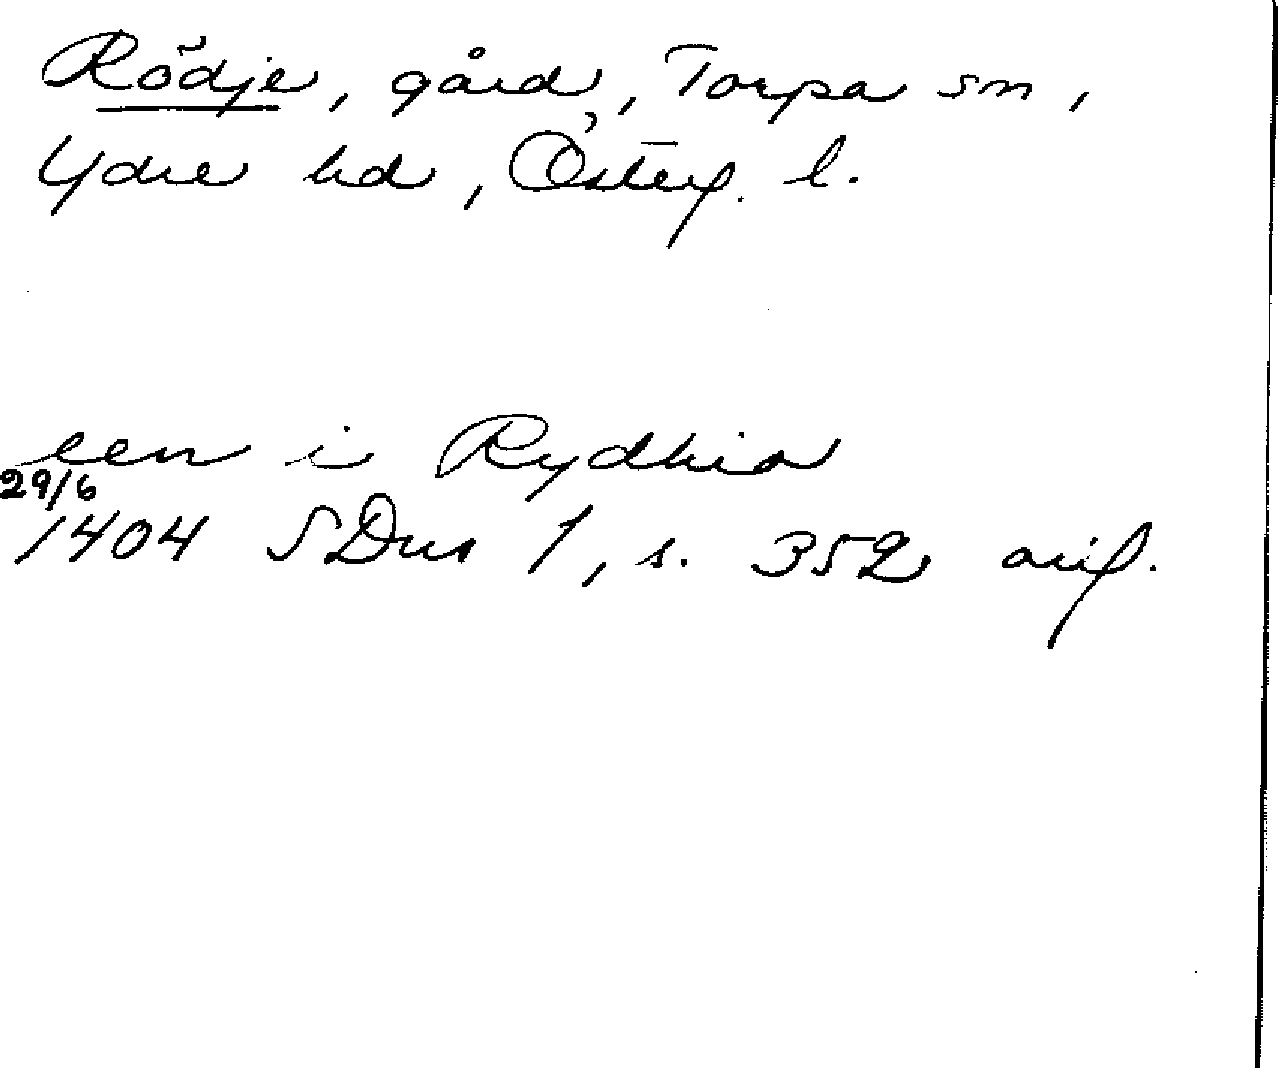 Rödje, gård, Torpa sn,
Ydre hd, Österg. l.
een i Rydhia
29/6
1404 SDns 1, s. 352 avif.